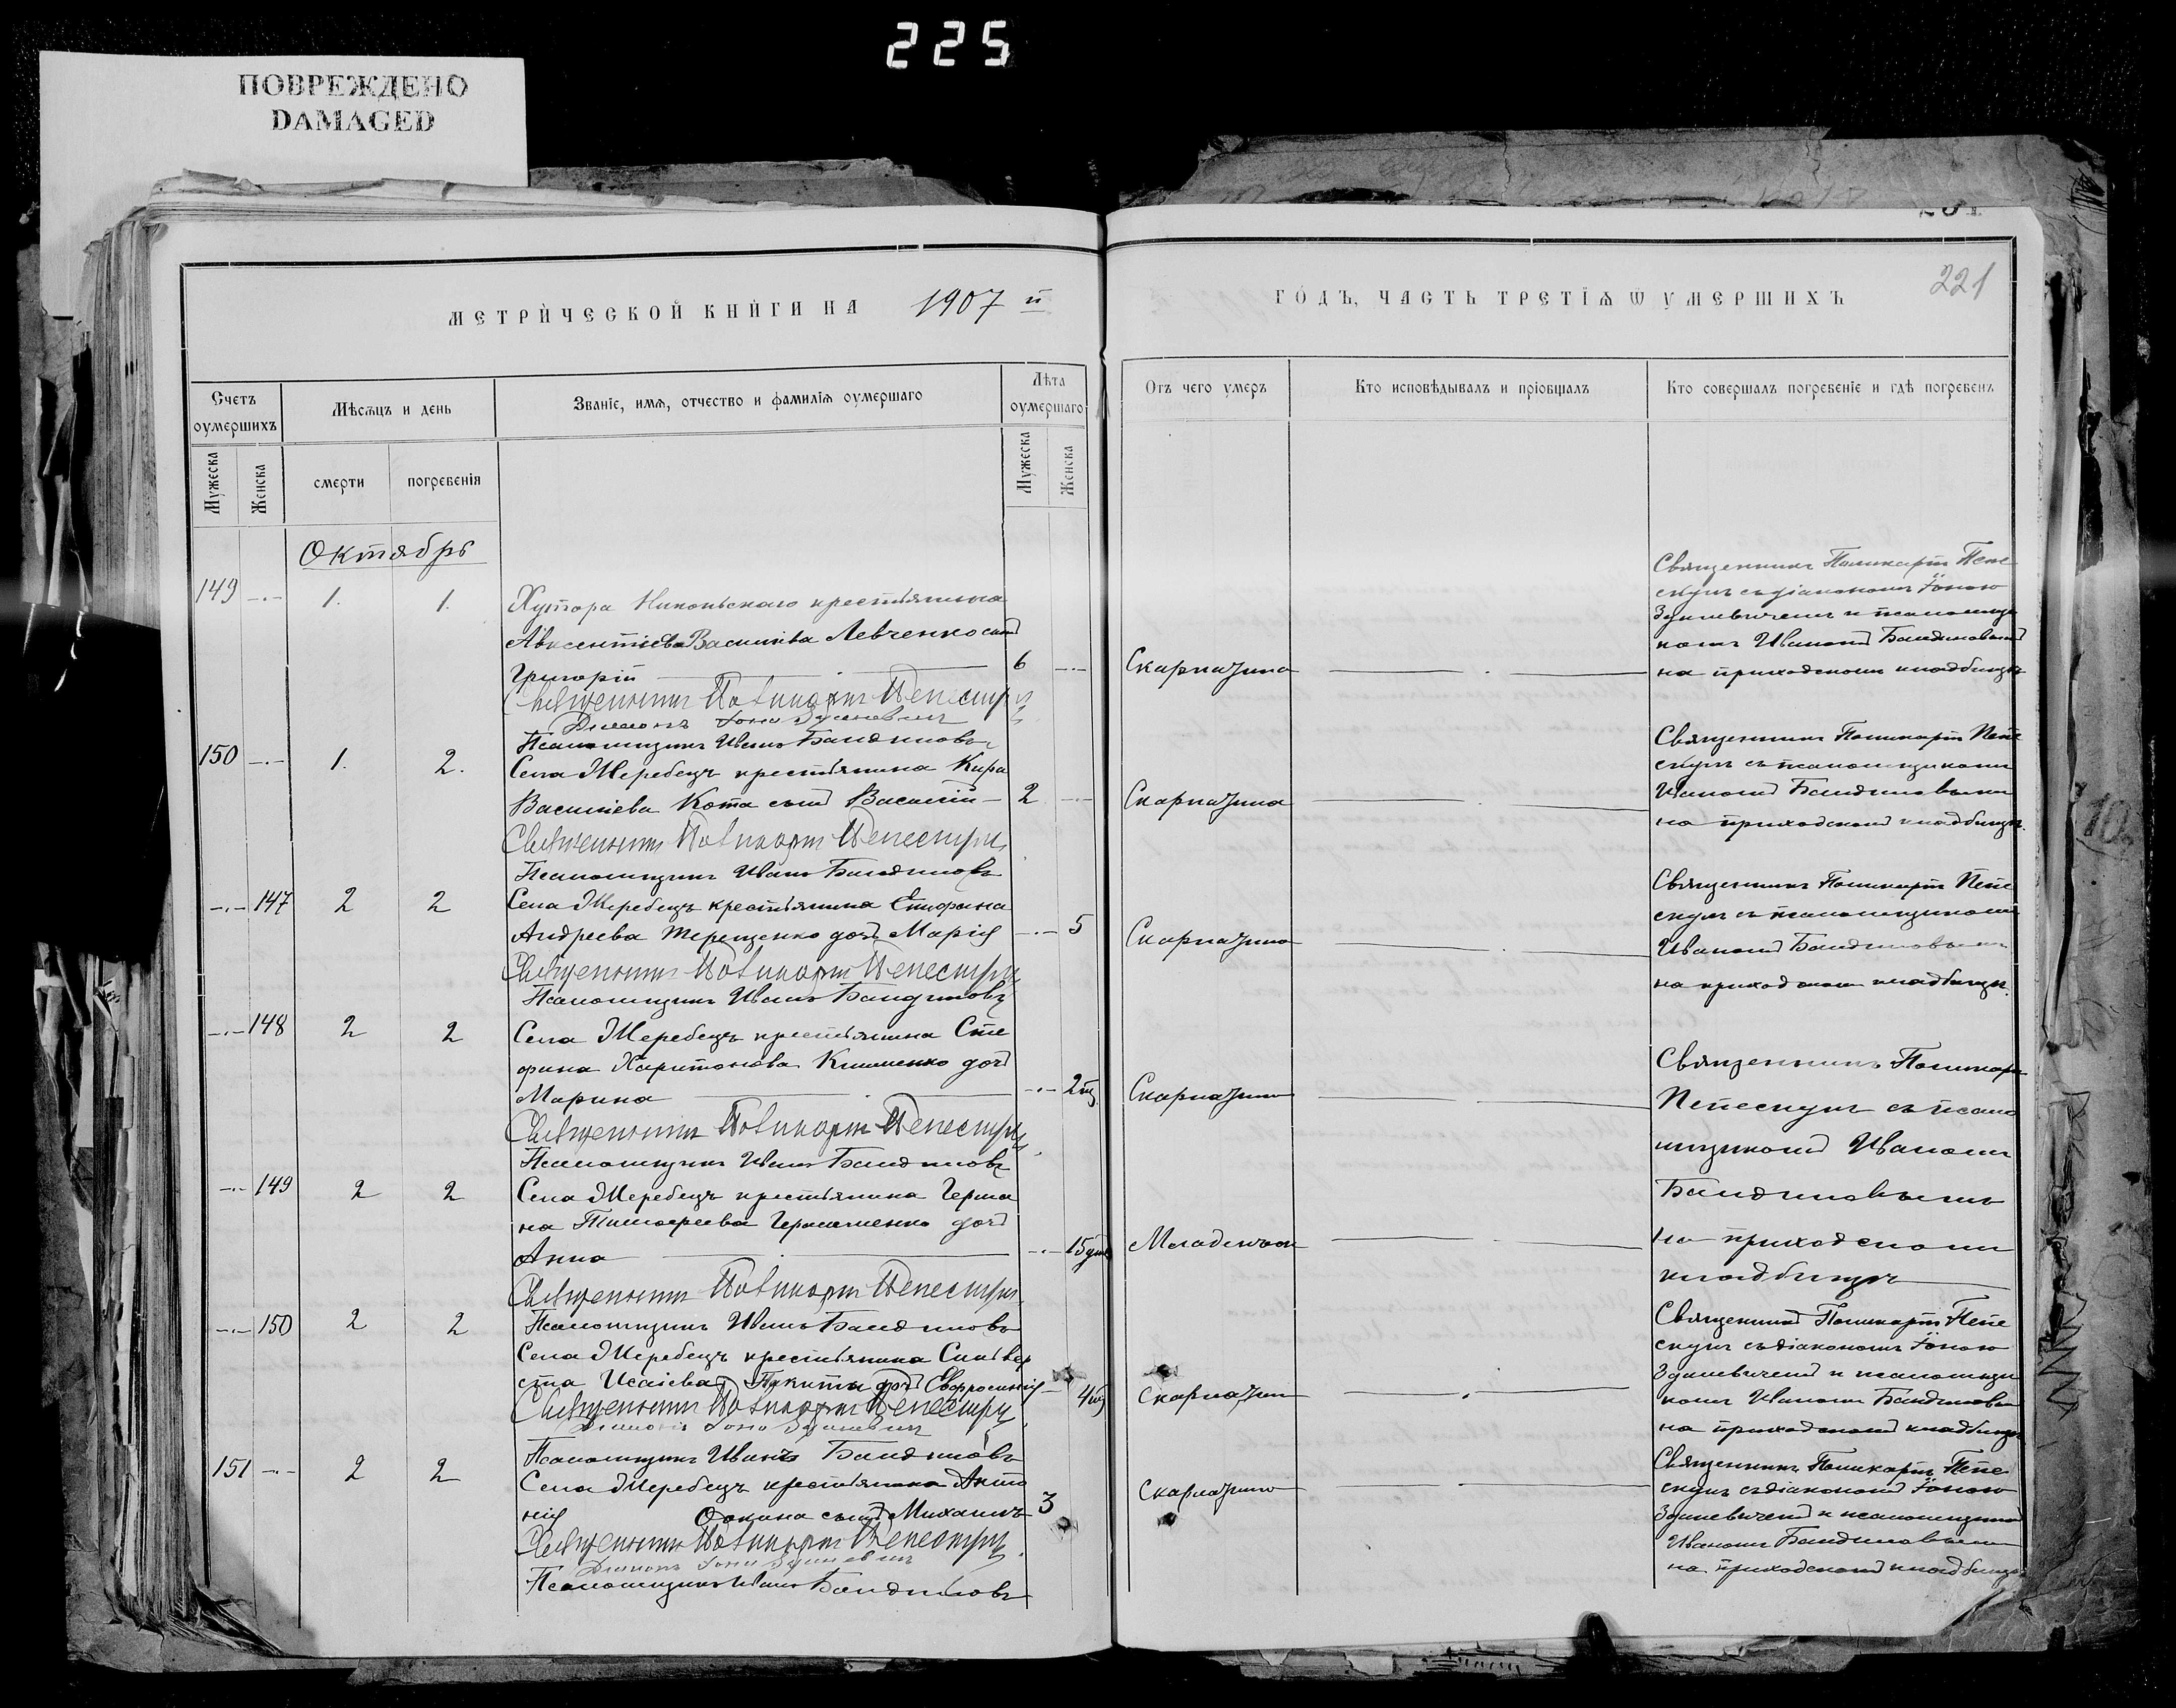 225
ПОВРЕЖДЕНО
DAMAGED
МЕТРИЧЕСКОЙ КНИГИ НА 1907 й
Счетъ оумершихъ
Мужеска
Женска
Мѣсяцъ и день
смерти
погребенія
Званіе, имя, отчество и фамилія оумершаго
Лѣта оумершаго
Мужеска
Женска
Октябрь
149 1. 1. Хутора Никольскаго крестьянина
Авксентіева Василіева Левченко сынъ
Григорій 6
Священникъ Поликарпъ Пепескулъ
Діаконъ Іона Здиневичъ
Псаломщикъ Иванъ Бандиловъ
150 1. 2. Села Жеребецъ крестьянина Кира
Василіева Кота сынъ Василій 2
Священникъ Поликарпъ Пепескулъ
Псаломщикъ Иванъ Бандиловъ
147 2 2 Села Жеребецъ крестьянина
Андреева Терещенко дочь Марія 5
Священникъ Поликарпъ Пепескулъ
Псаломщикъ Иванъ Бандиловъ
148 2 2 Села Жеребецъ крестьянина Сте
фана Харитонова Клименко дочь
Марина 2
Священникъ Поликарпъ Пепескулъ
Псаломщикъ Иванъ Бандиловъ
149 2 2 Села Жеребецъ крестьянина Герма
на Тимофеева дочь
Анна 15 дн
Священникъ Поликарпъ Пепескулъ
150 2 2 Псаломщикъ Иванъ Бандиловъ
Села Жеребецъ крестьянина Сильвер
ста Исаіева дочь Евфросинія 4
Священникъ Поликарпъ Пепескулъ
Діаконъ Іона Здиневичъ
Псаломщикъ Иванъ Бандиловъ
151 2 2 Села Жеребецъ крестьянина Анто
нія сынъ Михаилъ 3
Священникъ Поликарпъ Пепескулъ
Діаконъ Іона Здиневичъ
Псаломщикъ Иванъ Бандиловъ
ГОДЪ, ЧАСТЬ ТРЕТІЯ Ѿ УМЕРШИХЪ
221
Отъ чего умеръ
Кто исповѣдывалъ и пріобщалъ
Кто совершалъ погребеніе и гдѣ погребенъ
Скарлатина
Священникъ Поликарпъ Пепе
скулъ съ діакономъ Іоною
Здиневичемъ и псаломщи
комъ Иваномъ Бандиловымъ
на приходскомъ кладбищѣ
Скарлатина
Священникъ Поликарпъ Пепе
скулъ съ псаломщикомъ
Иваномъ Бандиловымъ
на приходскомъ кладбищѣ.
Скарлатина
Священникъ Поликарпъ Пепе
скулъ съ псаломщикомъ
Иваномъ Бандиловымъ
на приходскомъ кладбищѣ.
Скарлатина
Младенч
Священникъ Поликарпъ
Пепескулъ съ псало
мщикомъ Иваномъ
Бандиловымъ
на приходскомъ
кладбищѣ
Скарлатина
Священникъ Поликарпъ Пепе
скулъ съ діакономъ Іоною
Здиневичемъ и псаломщи
комъ Иваномъ Бандиловым
на приходскомъ кладбищѣ
Скарлатина
Священникъ Поликарпъ Пепе
скулъ съ діакономъ Іоною
Здиневичемъ и псаломщикомъ
Иваномъ Бандиловымъ
на приходскомъ кладбищѣ